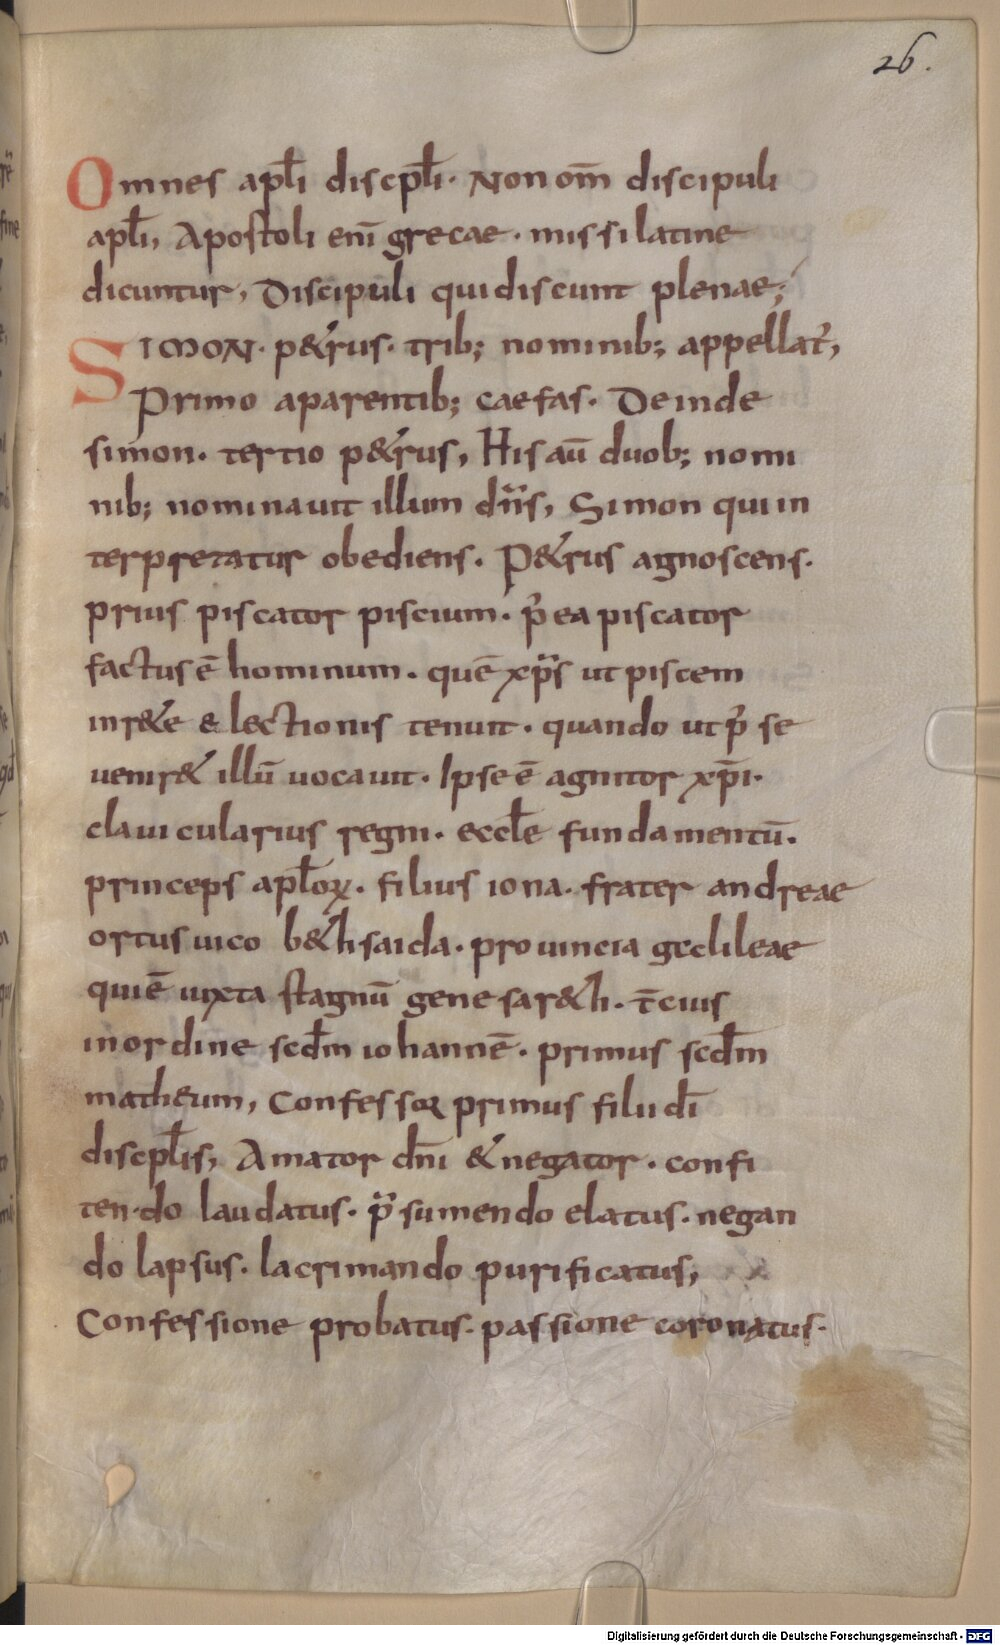 26.
Omnes apłi discpłi· Non om̄ discipuli
apłi, Apostoli eni̅ grecae· missi latine
dicuntur, Discipuli qui discunt plenae;
SIMON· p&rus· trib; nominib; appellat̉,
Primo aparentib; caefas· Deinde
simon· tertio p&rus, His au̅ duob; nomi
nib; nominauit illum dn̅s, Simon qui in
terpretatur obediens· P&rus agnoscens·
prius piscator piscium· p̉ ea piscator
factus e̅ hominum· que̅ xp̅s ut piscem
inr&e electionis tenuit· quando ut p̉ se
uenir& illu̅ uocauit· Ipse e̅ agnitor xp̅i·
clauicularius regni· eccłe fundamentu̅·
princeps apłoꝝ· filius iona· frater andreae
ortus uico b&hsaida· prouincia galileae
qui e̅ iuxta stagnu̅ genesar&h· t̅cius
in ordine scd̅m iohanne̅· primus scd̅m
matheum, Confessor primus filii di̅
discpłis, Amator dn̅i & negator· confi
tendo laudatus· p̉sumendo elatus· negan
do lapsus· lacrimando purificatus,
Confessione probatus· passione coronatus·
Digitalisierung gefördert durch die Deutsche Forschungsgemeinschaft - DFG